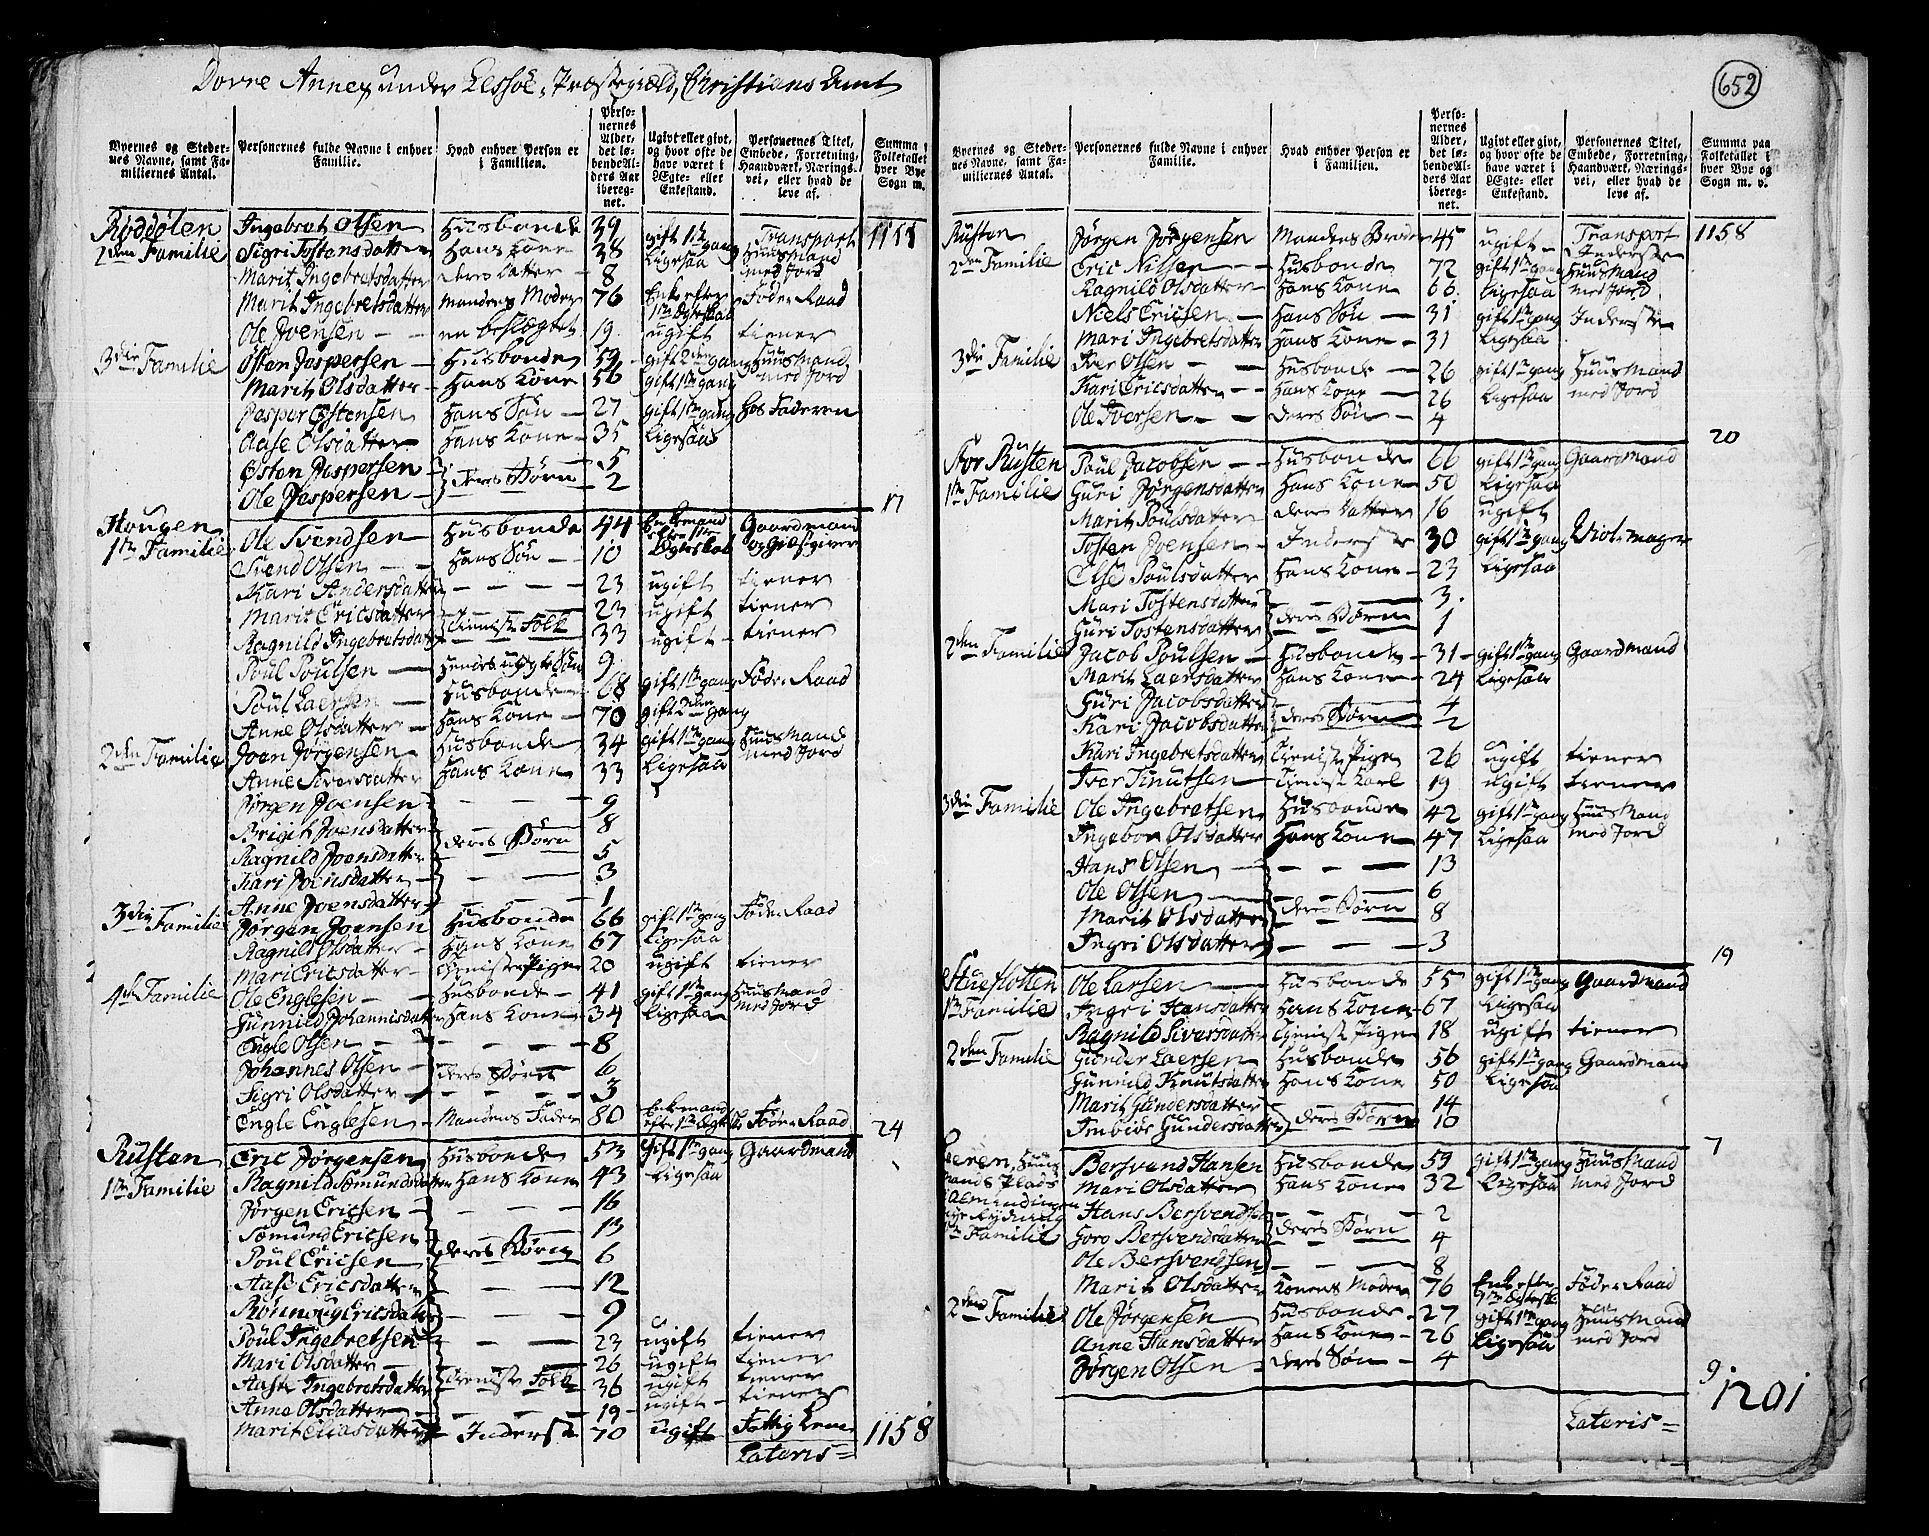 Dovre Annex under Lessøe Præstegield, Christians Amt
652
Byernes og Stedernes Navne, samt Familiernes Antal. | Personernes fulde Navne i enhver Familie. | Hvad enhver Person er i Familien. | Personernes Alder, det løbende Alders Aar iberegnet. | Ugivt eller givt, og hvor ofte de have været i Ægte- eller Enkestand. | Personernes Titel, Embede, Forretning, Haandværk, Næringsvei, eller hvad de leve af. | Summa Folketallet i hver Bye Sogn m.
Ingebret Olsen Husbonde 39 gift 1te gang Transport 1111
2den Familie Sigri Tostensdatter Hans Kone 38 Ligesaa Huusmand med Jord
Marit Ingebretsdatter deres datter 8
Marit Ingebretsdatter Mandens Moder 76 Enke efter 1te Ægteskab Føder Raad
Ole Joensen en beslægtet 19 ugift tiener
3die Familie Østen Jaspersen Husbonde 59 gift 2den gang Huusmand med Jord
Marit Olsdatter Hans Kone 56 gift 1te gang
Jasper Østensen Hans Søn 27 gift 1te gang hos Faderen
Aase Olsdatter Hans Kone 35 Ligesaa
Østen Jaspersen deres Børn 5
Ole Jaspersen 2
17
Hougen
1te Familie Ole Svendsen Husbonde 44 Enkemand efter 1te Ægteskab Gaardmand og Giæstgiver
Svend Olsen Hans Søn 10
Kari Andersdatter 23 ugift tiener
Marit Ericsdatter Tieniste Folk 23 ugift tiener
Ragnild Ingebretsdatter 33 ugift tiener
Poul Poulsen Hendes uægte Søn 9
Poul Laersen Husbonde 68 gift 1te gang Føder Raad
Anne Olsdatter Hans Kone 70 gift 2den gang
2den Familie Joen Jørgensen Husbonde 34 gift 1te gang Huusmand med Jord
Anne Siversdatter Hans Kone 33 Ligesaa
Jørgen Joensen 9
Brigit Joensdatter 8
Ragnild Joensdatter deres Børn 5
Kari Joensdatter 3
Anne Joensdatter 1
3die Familie Jørgen Joensen Husbonde 66 gift 1te gang Føder Raad
Ragnild Olsdatter Hans Kone 67 Ligesaa
Mari Ericsdatter Tieniste Pige 20 ugift tiener
4de Familie Ole Englesen Husbonde 41 gift 1te gang Huusmand med Jord
Gunnild Johannisdatter Hans Kone 34 Ligesaa
Engle Olsen 8
Johannes Olsen deres Børn 6
Sigri Olsdatter 3
Engle Englesen Mandens Fader 80 Enkemand efter 1te Føder Raad
24
Rusten Eric Jørgensen Husbonde 53 gift 1te gang Gaardmand
1te Familie Ragnild Somundsdatter Hans Kone 43 Ligesaa
Jørgen Ericsen 16
Somund Ericsen 13
Poul Ericsen deres Børn 6
Aase Ericsdatter 12
Rønnoug Ericsdatter 9
Poul Ingebretsen 23 ugift tiener
Mari Olsdatter 26 ugift tiener
Aase Ingebretsdatter Tieniste Folk 36 ugift tiener
Anne Olsdatter 19 ugift tiener
Marit Eliasdatter Inderste 70 ugift Fattig Lem 1158
Lateris
Byernes og Stedernes Navne, samt Familiernes Antal. | Personernes fulde Navne i enhver Familie. | Hvad enhver Person er i Familien. | Personernes Alder, det løbende Alders Aar iberegnet. | Ugivt eller givt, og hvor ofte de have været i Ægte- eller Enkestand. | Personernes Titel, Embede, Forretning, Haandværk, Næringsvei, eller hvad de leve af. | Summa paa Folketallet i hver Bye og Sogn m. v.
Rusten Jørgen Jørgensen Mandens Broder 45 ugift Transport Inderste 1158
2den Familie Eric Nilsen Husbonde 72 gift 1te gang Huusmand med Jord
Ragnild Olsdatter Hans Kone 66 Ligesaa
Niels Ericsen Hans Søn 31 gift 1te gang Inderste
Mari Ingebretsdatter Hans Kone 31 Ligesaa
3die Familie Iver Olsen Husbonde 26 gift 1te gang Huusmand med Jord
Kari Ericsdatter Hans Kone 26 Ligesaa
Ole Iversen deres Søn 4
20
Rusten Poul Jacobsen Husbonde 66 gift 1te gang Gaardmand
1te Familie Guri Jørgensdatter Hans Kone 50 Ligesaa
Marit Poulsdatter deres datter 16 ugift
Tosten Joensen Inderste 30 gift 1te gang
Else Poulsdatter Hans Kone 23 Ligesaa
Mari Tostensdatter 3
Guri Tostensdatter deres Børn 1
2den Familie Jacob Poulsen Husbonde 31 gift 1te gang Gaardmand
Marit Laersdatter Hans Kone 24 Ligesaa
Guri Jacobsdatter 4
Kari Jacobsdatter deres Børn 2
Kari Ingebretsdatter Tieniste Pige 26 ugift tiener
Iver Knutsen Tieniste Karl 19 ugift tiener
3die Familie Ole Ingebretsen Husbonde 42 gift 1te gang Huusmand med Jord
Ingebor Olsdatter Hans Kone 47 Ligesaa
Hans Olsen 13
Ole Olsen 6
Marit Olsdatter deres Børn 8
Ingri Olsdatter 3
19
Stueflotten Ole Larsen Husbonde 55 gift 1te gang Gaardmand
1te Familie Ingri Hansdatter Hans Kone 67 Ligesaa
Ragnild Siversdatter Tieniste Pige 18 ugift tiener
2den Familie Gunder Laersen Husbonde 56 gift 1te gang Gaardmand
Gunnild Knutsdatter Hans Kone 50 Ligesaa
Marit Gundersdatter 14
Gundersdatter deres Børn 10
7
Huusmands Plads Bersvend Hansen Husbonde 59 gift 1te gang Huusmand med Jord
Mari Olsdatter Hans Kone 32 Ligesaa
Hans Bersvendsen 2
1te Familie Goro Bersvendsdatter deres Børn 4
Ole Bersvendsen 8
Marit Olsdatter Konens Moder 76 Enke efter 1te Ægtesk. Føder Raad
2den Familie Ole Jørgensen Husbonde 27 gift 1te gang Huusmand med Jord
Anne Hansdatter Hans Kone 26 Ligesaa
Jørgen Olsen deres Søn 4
9
1201
Lateris